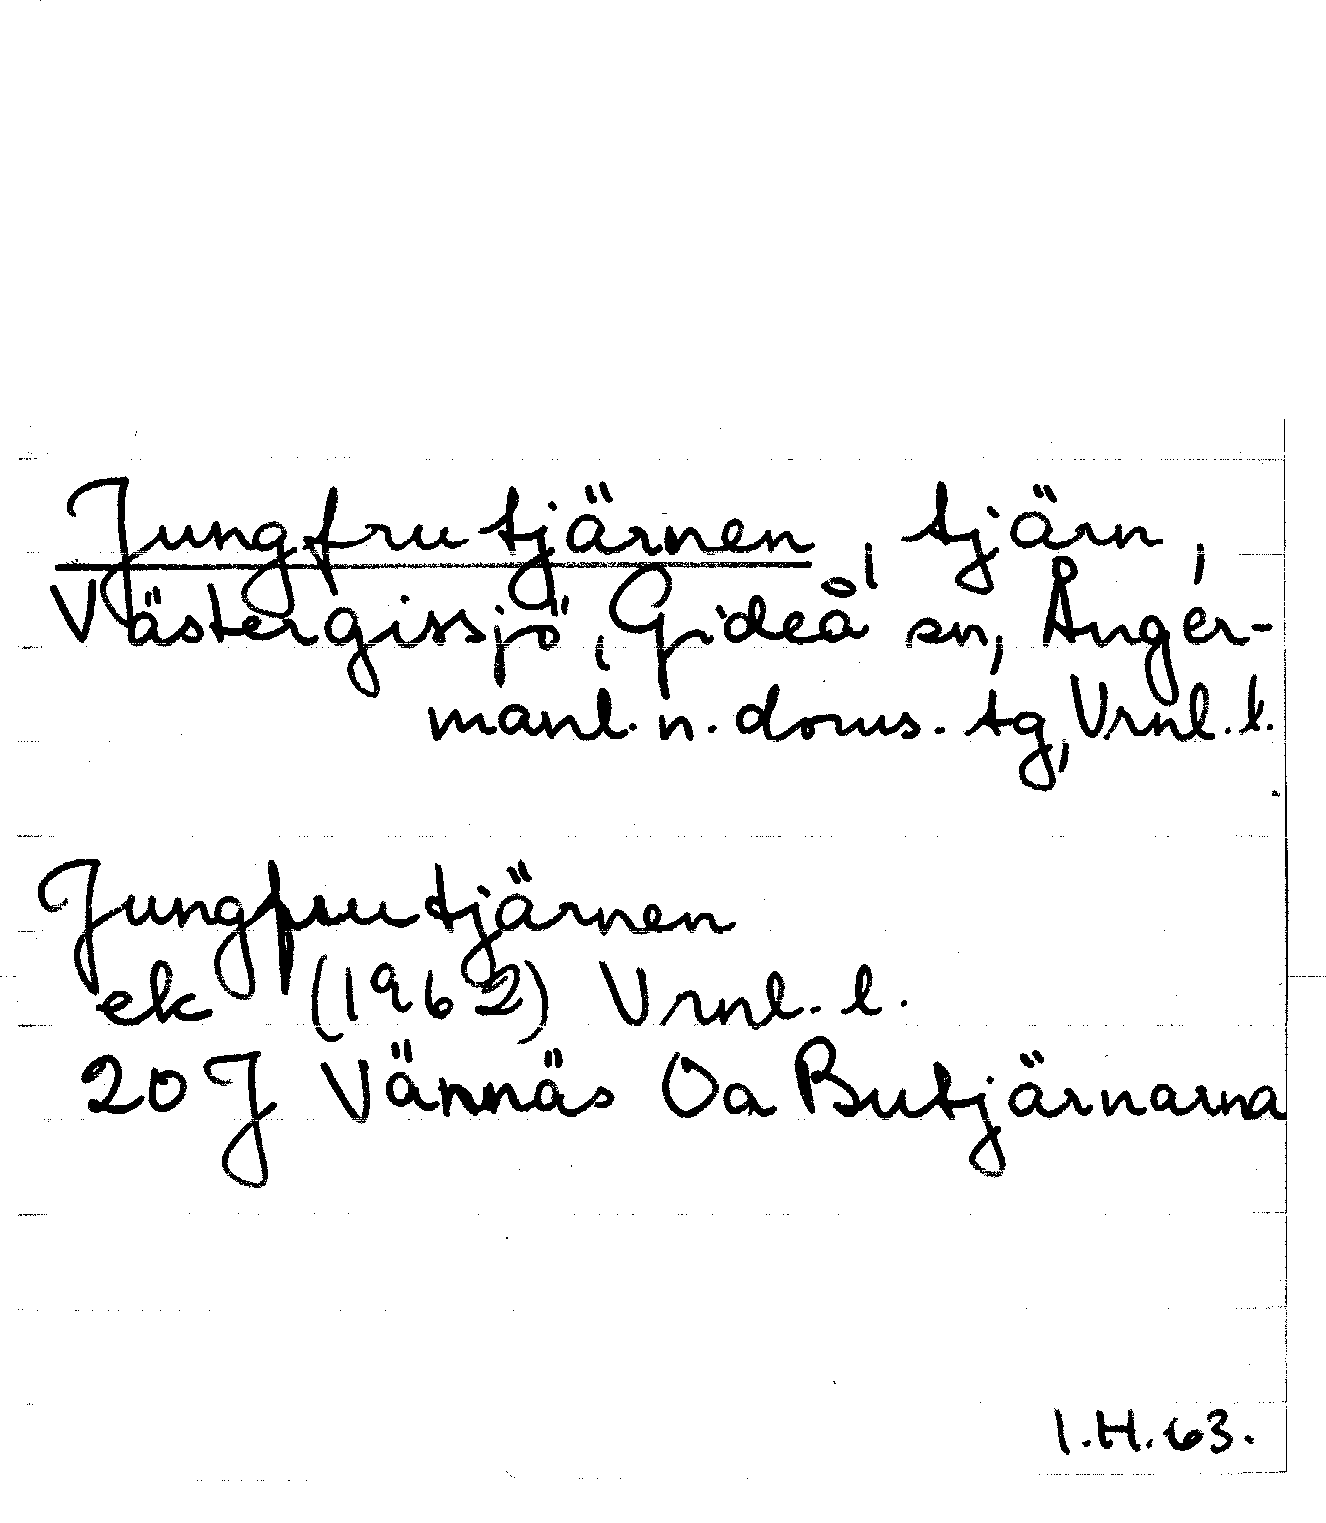 Jungfrutjärnen, tjärn,
Västergissjö, Gideå sn, Ånger-
manl. n. doms. tg, Vrnl. l.
Jungfrutjärnen
ek (1962) Vrnl. l.
20 J Vännäs Oa Butjärnarna
I.H. 63.